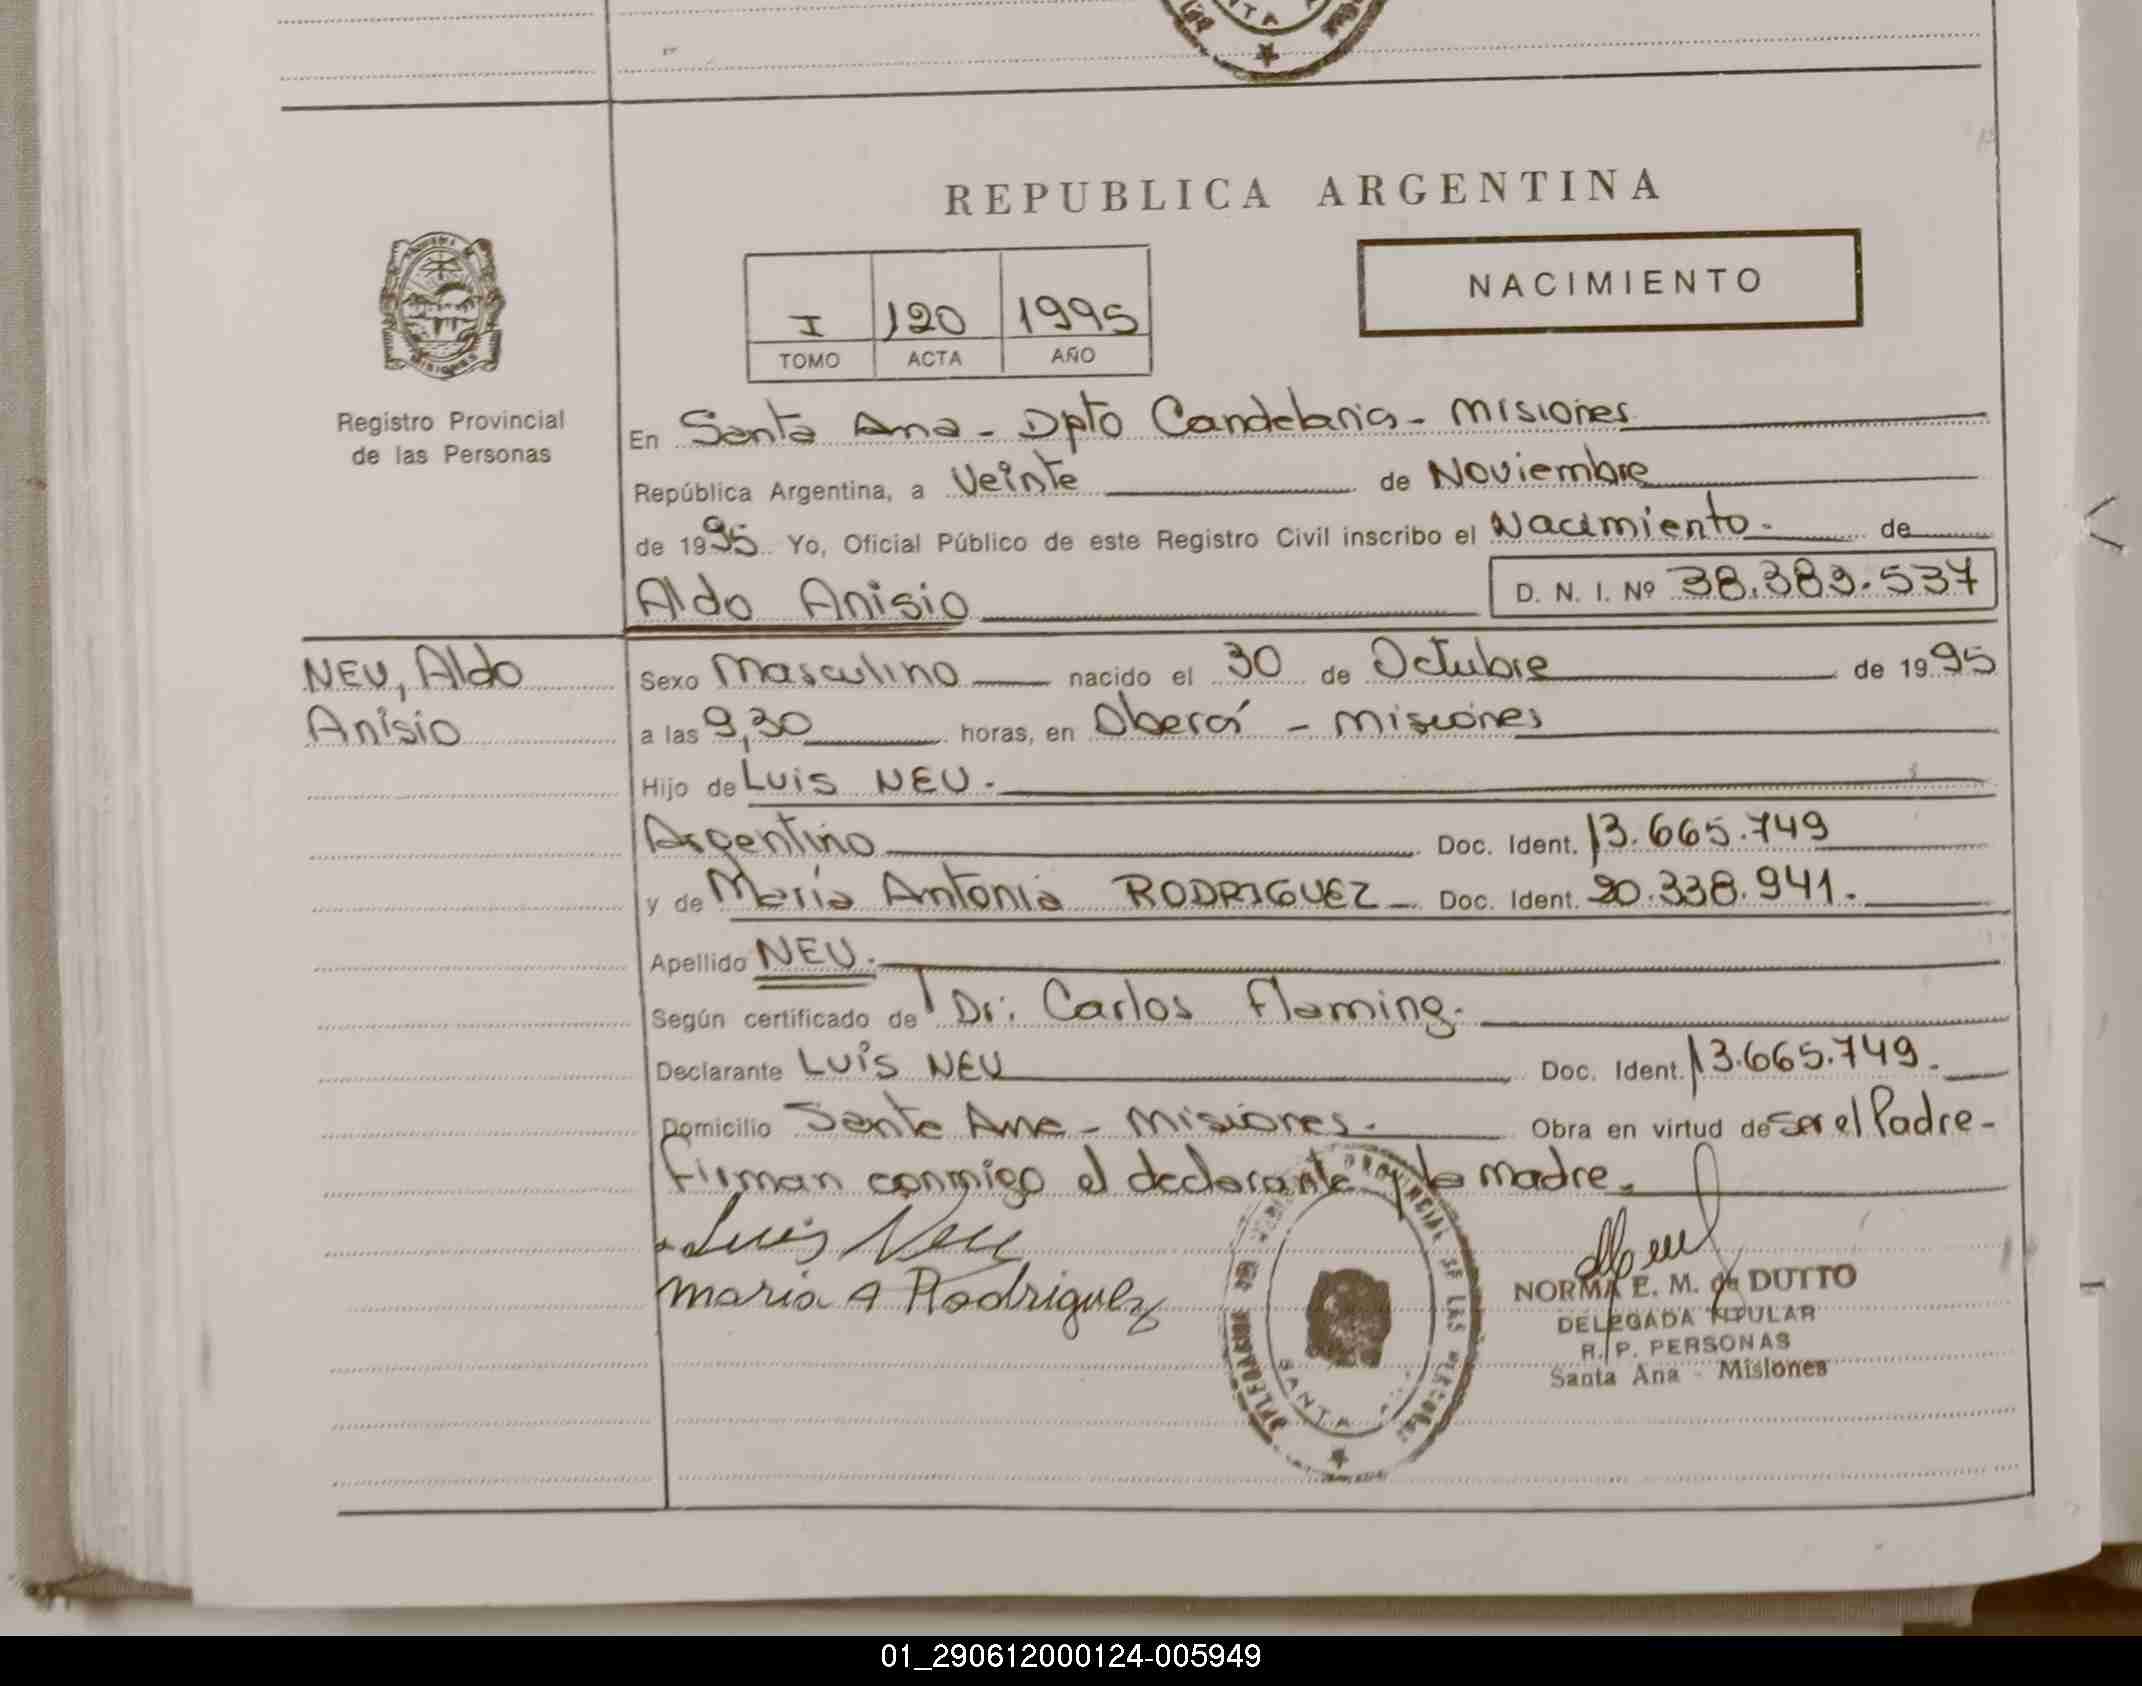 REPUBLICA ARGENTINA
NACIMIENTO
I 120 1995
TOMO ACTA AÑO
Registro Provincial
de las Personas
En Santa Ana - Dpto Candelaria - Misiones
República Argentina, a Veinte de Noviembre
de 1995 Yo, Oficial Público de este Registro Civil inscribo el Nacimiento - de
Aldo Anisio D. N. I. Nº 38.383.537
NEU, Aldo
Anisio
Sexo Masculino nacido el 30 de Octubre de 1995
a las 9,30 horas, en Oberá - Misiones
Hijo de Luis NEU.
Argentino Doc. Ident. 13.665.749
y de María Antonia RODRIGUEZ - Doc. Ident. 20.338.941.
Apellido NEU.
Según certificado de Dr. Carlos Flaming.
Declarante Luis NEU Doc. Ident. 13.665.749.
Domicilio Santa Ana - Misiones. Obra en virtud de ser el Padre -
Firman conmigo el declarante y la madre.
Luis Neu
Maria A Rodriguez
DELEGACION PROVINCIAL DE LAS PERSONAS
SANTA
NORMA E. M. de DUTTO
DELEGADA TITULAR
R. P. PERSONAS
Santa Ana - Misiones
01_290612000124-005949